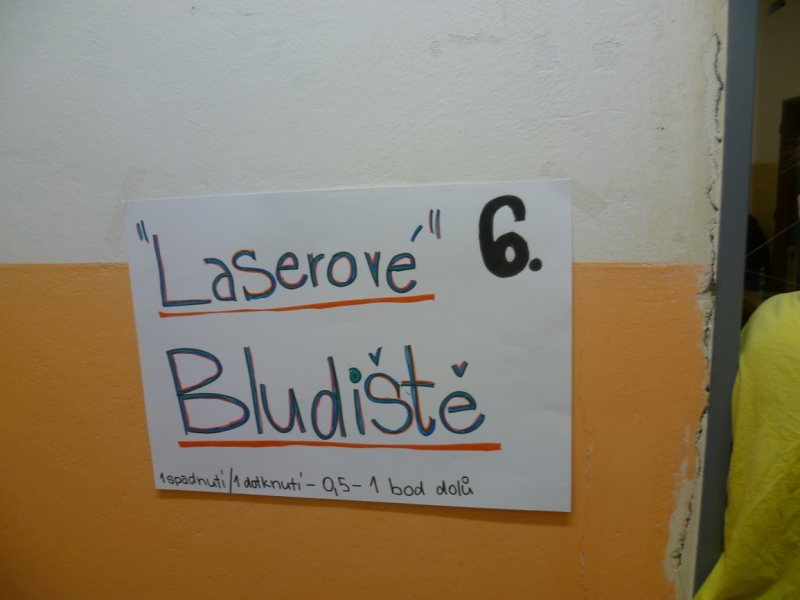 "Laserové" 6.
Bludiště
1 spadnutí/1 dotknutí - 0,5 - 1 bod dolů